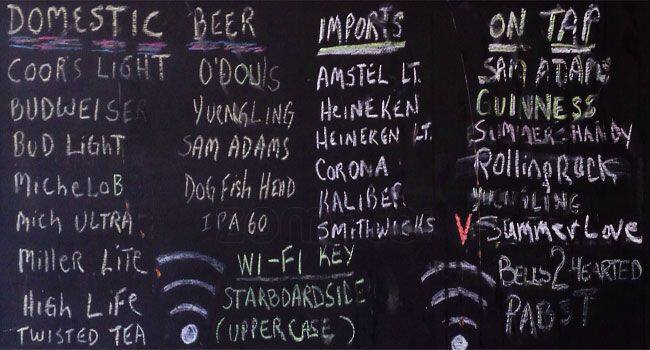 DOMESTIC BEER
COOR'S LIGHT
BUDWEISER
BUD LIGHT
MICHELOB
MICH ULTRA
MILLER LITE
HIGH LIFE
TWISTED TEA
O'DOULS
YUENGLING
SAM ADAMS
DOG FISH HEAD
IPA 60
IMPORTS
AMSTEL LT.
HEINEKEN
HEINEKEN LT.
CORONA
KALIBER
SMITHWICKS
WI-FI KEY
STARBOARDSIDE
(UPPERCASE)
ON TAP
SAM ADAMS
GUINNESS
SUMMERSHANDY
ROLLING ROCK
YUENGLING
V SUMMER LOVE
BELLS 2 HEARTED
PABST